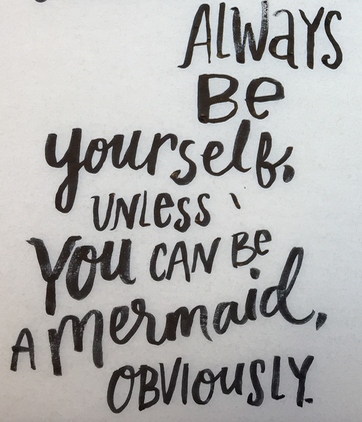 ALWAYS
Be
yourself,
UNLESS
You CAN Be
A mermaid,
OBVIOUSLY.